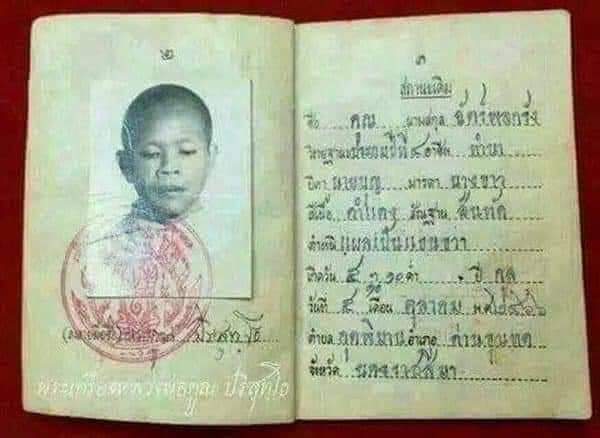 ๒
พระเครื่องหลวงพ่อคูณ ปริสุทโธ
๓
สถานะเดิม
ชื่อ คูณ นามสกุล ฉัตร์พลกรัง
วิทยฐานะ ประถมปีที่ ๔ อาชีพ ทำนา
บิดา นายบุญ มารดา นางขาว
สีเนื้อ ดำแดง สัณฐาน สันทัด
ตำหนิ แผลเป็นแขนขวา
เกิดวัน ๕ ๑๐ ค่ำ ปี กุล
วันที่ ๔ เดือน ตุลาคม พ.ศ. ๒๔๖๖
ตำบล กุดพิมาน อำเภอ ด่านขุนทด
จังหวัด นครราชสีมา